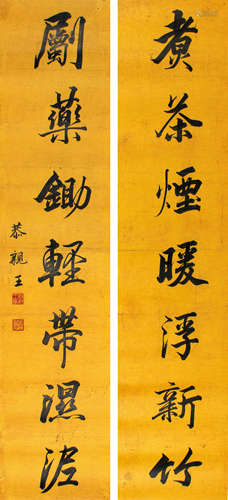 煮茶煙暖浮新竹
劚藥鋤輕帶濕泥
恭親王